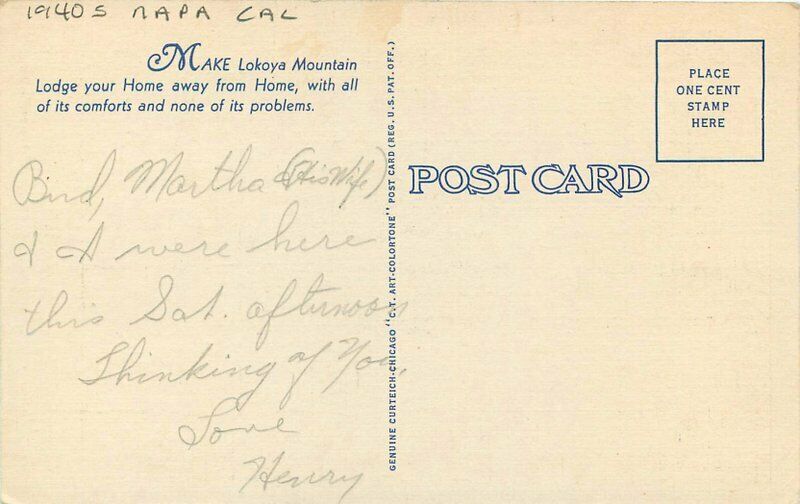 1940s NAPA CAL
MAKE Lokoya Mountain
Lodge your Home away from Home, with all
of its comforts and none of its problems.
Bud, Martha (His Wife)
& I were here
this Sat. afternoon
Thinking of You,
Love
Henry
GENUINE CURTEICH-CHICAGO "C.T. ART-COLORTONE" POST CARD (REG. U.S. PAT. OFF.)
POST CARD
PLACE
ONE CENT
STAMP
HERE